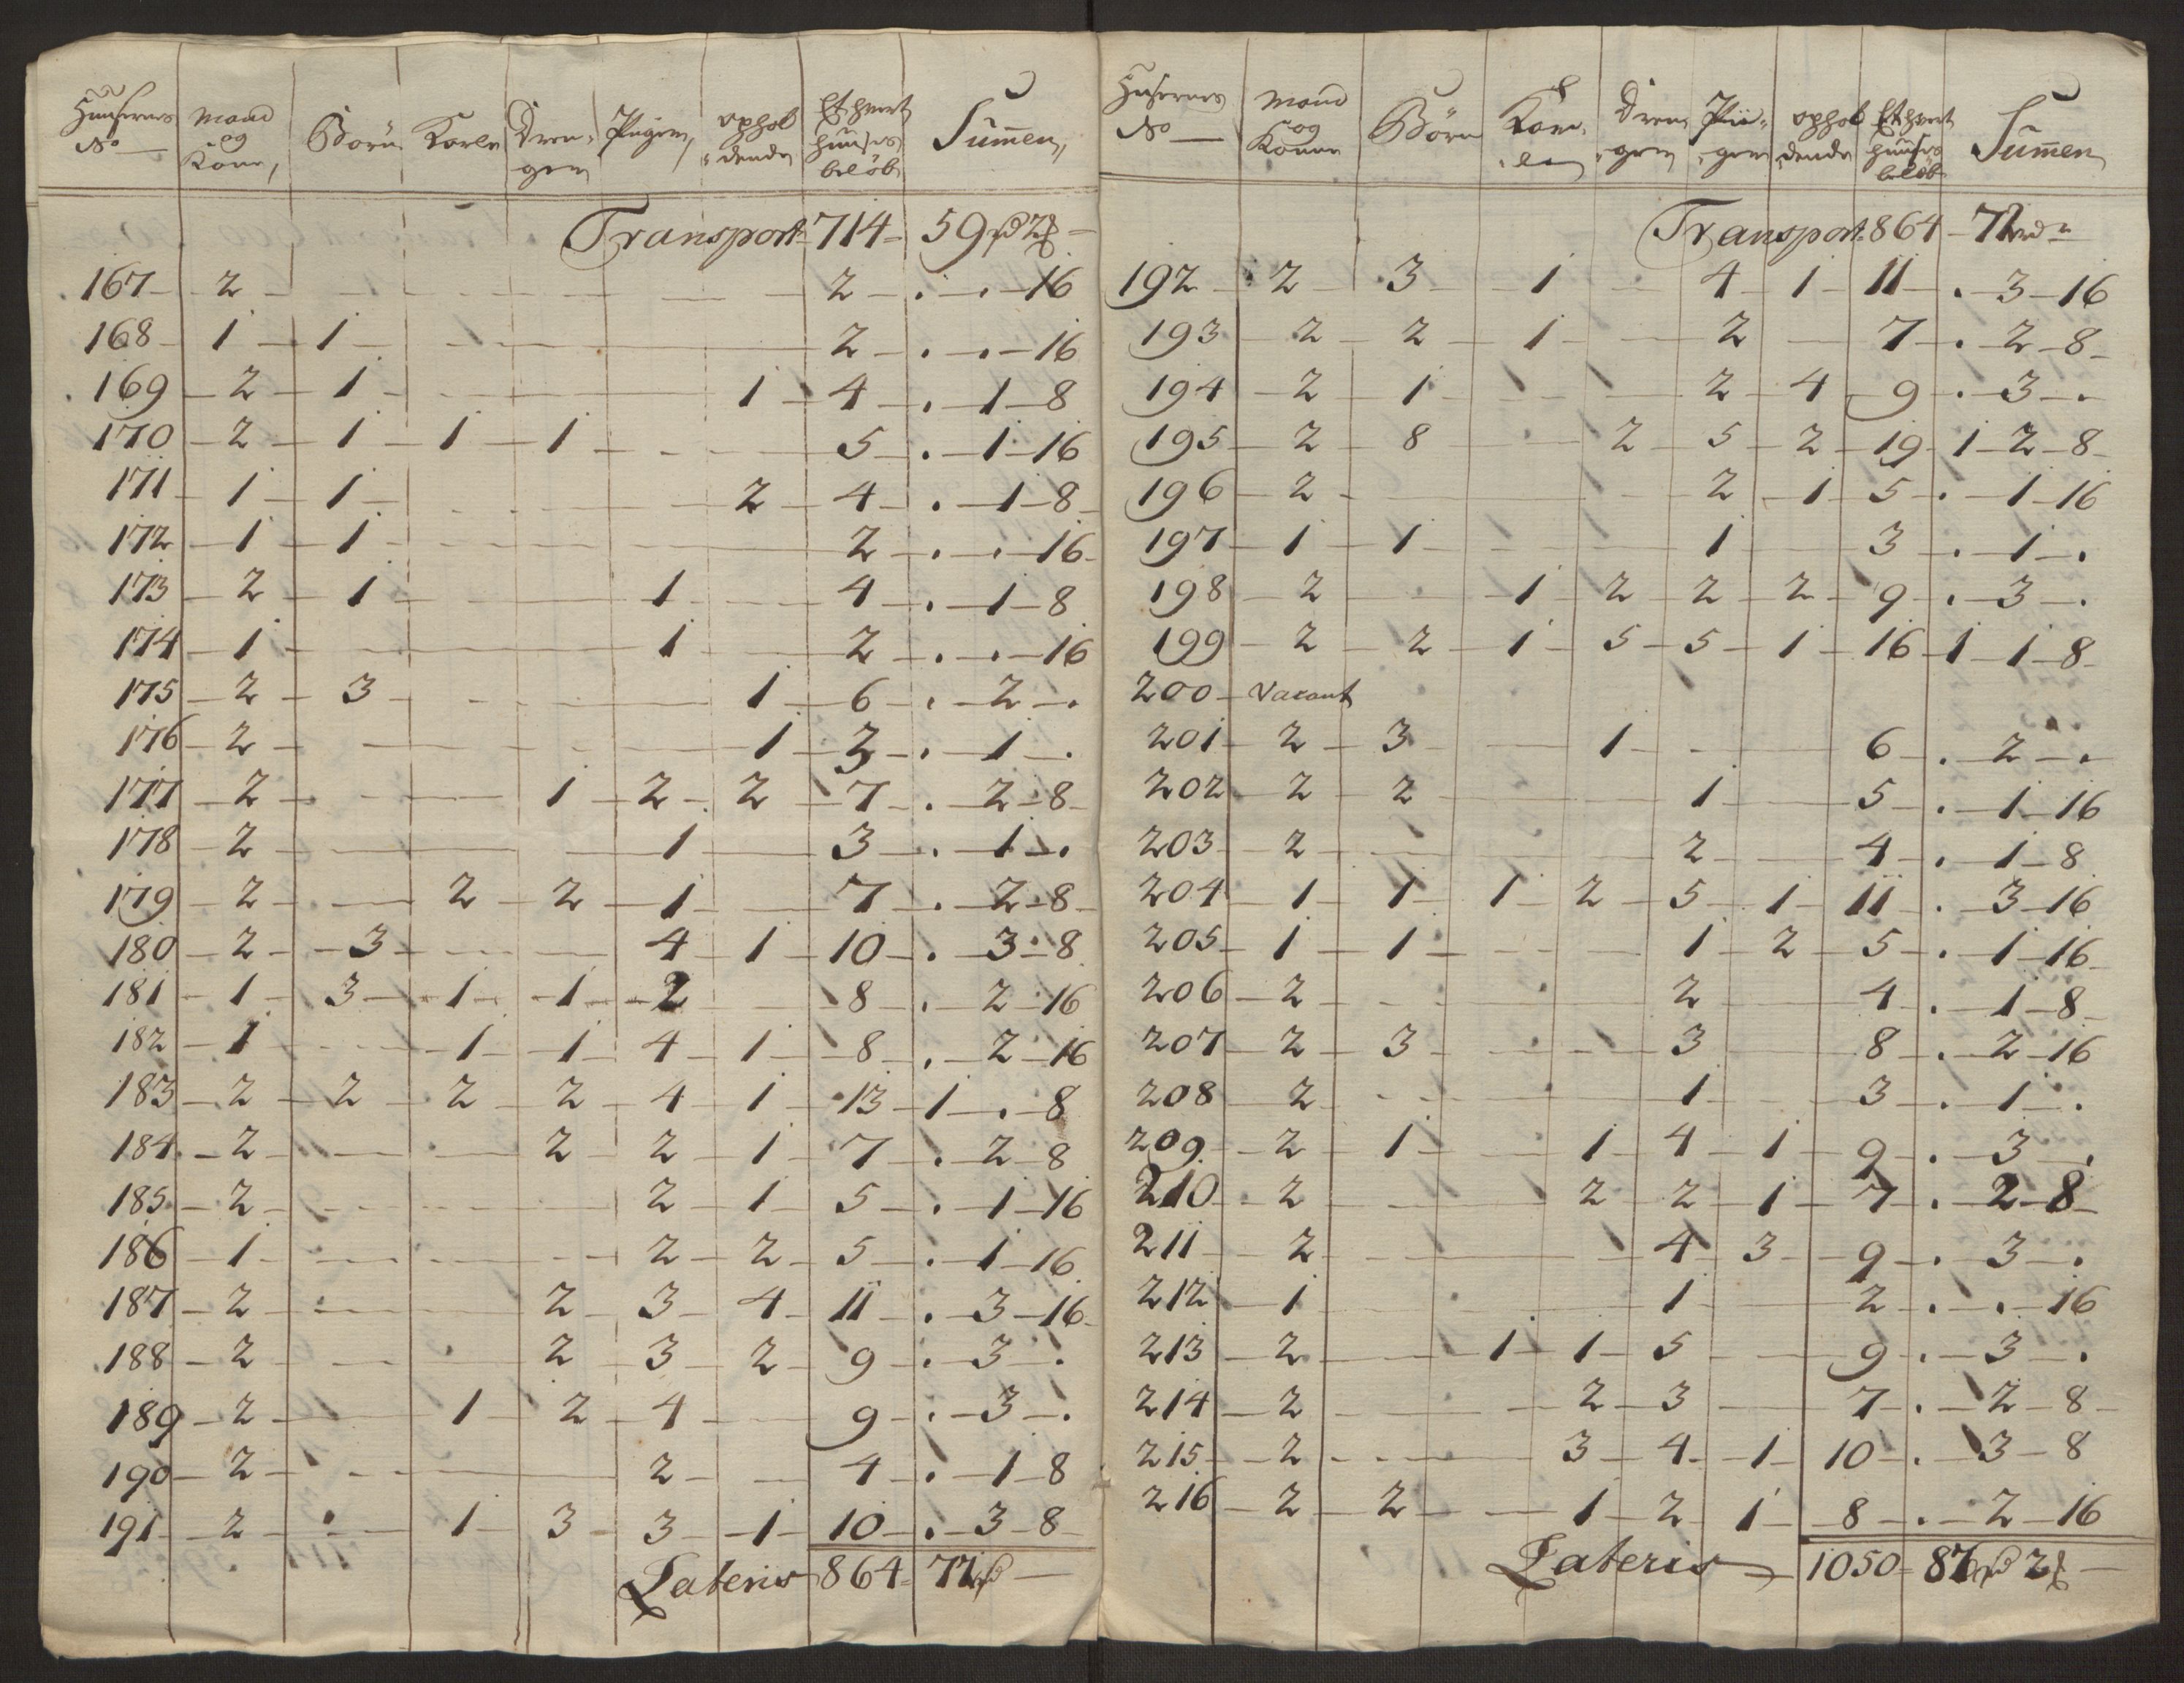 Huusernes No — | Mand og Kone, | Börn | Karle | Dren-gen | Pigen, | ophol-dende | Et hvert huuses belöb | Summen,
Transport 714 — 59 rd 2 ß —
167 — 2 — 2 — . — . — 16
168 — 1 — 1 — 2 — . — . — 16
169 — 2 — 1 — 1 — 4 — . — 1 — 8
170 — 2 — 1 — 1 — 1 — 5 — . — 1 — 16
171 — 1 — 1 — 2 — 4 — . — 1 — 8
172 — 1 — 1 — 2 — . — . — 16
173 — 2 — 1 — 1 — 4 — . — 1 — 8
174 — 1 — 1 — 2 — . — . — 16
175 — 2 — 3 — 1 — 6 — . — 2 — .
176 — 2 — 1 — 3 — . — 1 — .
177 — 2 — 1 — 2 — 2 — 7 — . — 2 — 8
178 — 2 — 1 — 3 — . — 1 — .
179 — 2 — 2 — 2 — 1 — 7 — . — 2 — 8
180 — 2 — 3 — 4 — 1 — 10 — . — 3 — 8
181 — 1 — 3 — 1 — 1 — 2 — 8 — . — 2 — 16
182 — 1 — 1 — 1 — 4 — 1 — 8 — . — 2 — 16
183 — 2 — 2 — 2 — 2 — 4 — 1 — 13 — 1 — . — 8
184 — 2 — 2 — 2 — 1 — 7 — . — 2 — 8
185 — 2 — 2 — 1 — 5 — . — 1 — 16
186 — 1 — 2 — 2 — 5 — . — 1 — 16
187 — 2 — 2 — 3 — 4 — 11 — . — 3 — 16
188 — 2 — 2 — 3 — 2 — 9 — . — 3 — .
189 — 2 — 1 — 2 — 4 — 9 — . — 3 — .
190 — 2 — 2 — 4 — . — 1 — 8
191 — 2 — 1 — 3 — 3 — 1 — 10 — . — 3 — 8
Lateris 864 — 71 rd —
Husernes No — | Mand og Konne | Börn | Kar-le | Dren-gen | Pii-gen | ophol-dende | Et hvert huuses belöb | Summen
Transport 864 — 71 rd —
192 — 2 — 3 — 1 — 4 — 1 — 11 — . — 3 — 16
193 — 2 — 2 — 1 — 2 — 7 — . — 2 — 8
194 — 2 — 1 — 2 — 4 — 9 — . — 3 — .
195 — 2 — 8 — 2 — 5 — 2 — 19 — 1 — 2 — 8
196 — 2 — 2 — 1 — 5 — . — 1 — 16
197 — 1 — 1 — 1 — 3 — . — 1 — .
198 — 2 — 1 — 2 — 2 — 2 — 9 — . — 3 — .
199 — 2 — 2 — 1 — 5 — 5 — 1 — 16 — 1 — 1 — 8
200 — Vacant
201 — 2 — 3 — 1 — 6 — . — 2 — .
202 — 2 — 2 — 1 — 5 — . — 1 — 16
203 — 2 — 2 — 4 — . — 1 — 8
204 — 1 — 1 — 1 — 2 — 5 — 1 — 11 — . — 3 — 16
205 — 1 — 1 — 1 — 2 — 5 — . — 1 — 16
206 — 2 — 2 — 4 — . — 1 — 8
207 — 2 — 3 — 3 — 8 — . — 2 — 16
208 — 2 — 1 — 3 — . — 1 — .
209 — 2 — 1 — 1 — 4 — 1 — 9 — . — 3 — .
210 — 2 — 2 — 2 — 1 — 7 — . — 2 — 8
211 — 2 — 4 — 3 — 9 — . — 3 — .
212 — 1 — 1 — 2 — . — . — 16
213 — 2 — 1 — 1 — 5 — 9 — . — 3 — .
214 — 2 — 2 — 3 — 7 — . — 2 — 8
215 — 2 — 3 — 4 — 1 — 10 — . — 3 — 8
216 — 2 — 2 — 1 — 2 — 1 — 8 — . — 2 — 16
Lateris — 1050 — 87 rd 2 ß —